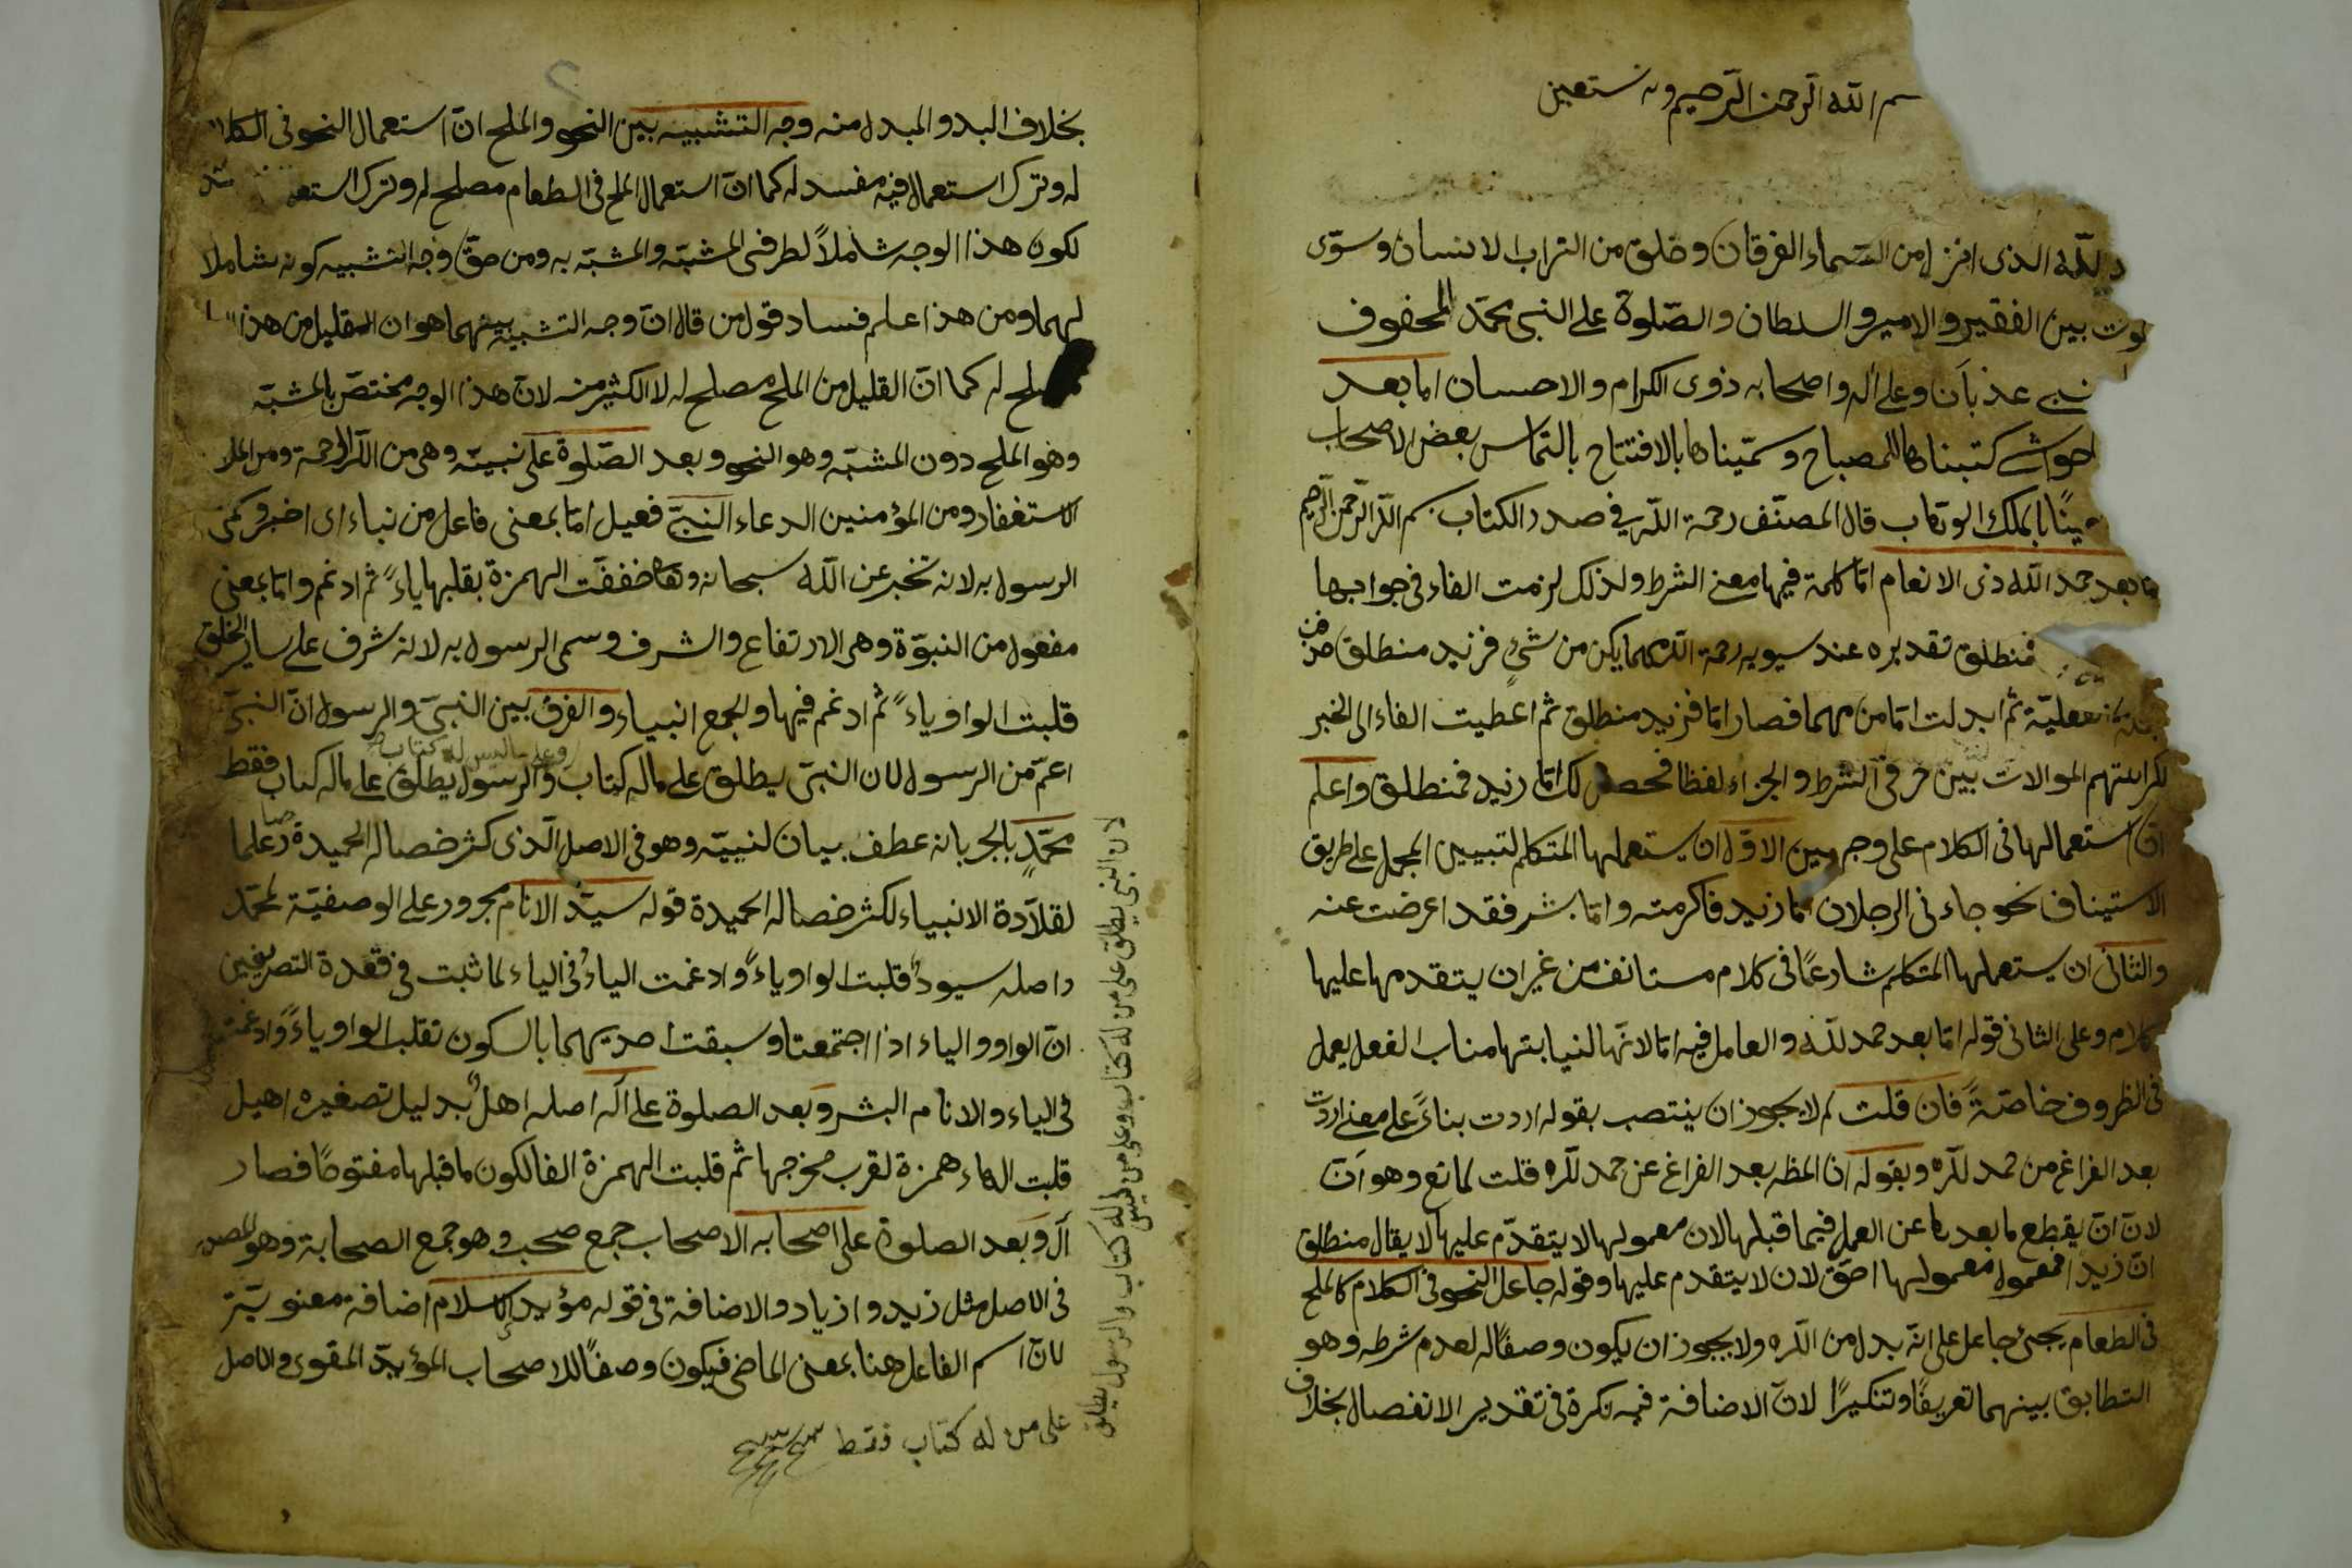 بسم الله الرحمن الرحيم وبه نستعين
لله الذى انزل من السماء الفرقان وخلق من التراب الانسان وسوّى
بين الفقير والامير والسلطان والصّلوة على النبى محمّد المحفوف
عذبان وعلى آله واصحابه ذوى الكرام والاحسان اما بعد
حواشى كتبناها للمصباح وسمّيناها بالافتتاح بالتماس بعض الاصحاب
بالملك الوهّاب قال المصنّف رحمة الله فى صدر الكتاب بسم الله الرحمن الرحيم
اما بعد حمد الله ذى الانعام امّا كلمة فيها معنى الشرط ولذلك لزمت الفاء فى جوابها
فمنطلق تقديره عند سيبويه رحمة الله مهما يكن من شئ فزيد منطلق
ثم ابدلت امّا من مهما فصار امّا فزيد منطلق ثم اعطيت الفاء الى الخبر
لكراهتهم الموالات بين حرفى الشرط والجزاء لفظا فحصل لك امّا زيد فمنطلق واعلم
انّ استعمالها فى الكلام على وجهين الاوّل ان يستعملها المتكلم لتبيين المجمل على طريق
الاستيناف نحو جاءنى الرجلان امّا زيد فاكرمته وامّا بشر فقد اعرضت عنه
والثانى ان يستعملها المتكلم شارعًا فى كلام مستانف من غير ان يتقدمها عليها
كلام وعلى الثانى قوله امّا بعد حمد لله والعامل فيه امّا لانّها لنيابتها مناب الفعل يعمل
فى الظروف خاصّةً فان قلت لم لا يجوز ان ينتصب بقوله اردت بناءً على معنى اردت
بعد الفراغ من حمد لله وبقوله ان المظ بعد الفراغ عن حمد لله قلت لمانع وهو انّ
لانّ انّ يقطع ما بعدها عن العمل فيما قبلها لان معمولها لا يتقدّم عليها لا يقال منطلق
انّ زيدا فمعمول معمولها احقّ لان لا يتقدم عليها وقوله جاعل النحو فى الكلام كالملح
فى الطعام يجئ جاعل على انّه بدل من الله ولا يجوز ان يكون وصفًا له لعدم شرطه وهو
التطابق بينهما تعريفًا وتنكيرًا لانّ الاضافة فيه نكرة فى تقدير الانفصال بخلاف
بخلاف البدل والمبدل منه وجه التشبيه بين النحو والملح انّ استعمال النحو فى الكلا
له وترك استعماله فيه مفسد له كما انّ استعمال الملح فى الطعام مصلح له وترك استعم
لكون هذا الوجه شاملاً لطرفى المشبّه والمشبّه به ومن حقّ وجه التشبيه كونه شاملا
لهما ومن هذا علم فساد قول من قال انّ وجه التشبيه بينهما هو ان القليل من هذا
مصلح له كما انّ القليل من الملح مصلح له لا الكثير منه لانّ هذا الوجه مختصّ بالمشبّه
وهو الملح دون المشبّه وهو النحو وبعد الصّلوة على نبيّه وهى من الله الرحمة ومن الملا
الاستغفار ومن المؤمنين الدعاء النبىّ فعيل امّا بمعنى فاعل من نباء اى اخبر وكنى
الرسول به لانه تخبر عن الله سبحانه وتعا خففت الهمزة بقلبها ياءً ثم ادغم وامّا بمعنى
مفعول من النبوّة وهى الارتفاع والشرف وسمى الرسول به لانه شرف على ساير الخلق
قلبت الواو ياءً ثم ادغم فيها والجمع انبياء والفرق بين النبىّ والرسول انّ النبىّ
وعلى ما ليس له كتاب
اعمّ من الرسول لان النبىّ يطلق على ماله كتاب والرسول يطلق على ماله كتاب فقط
محمّدٍ بالجر بانه عطف بيان لنبيّه وهو فى الاصل الّذى كثر خصاله الحميدة علما
لقلّادة الانبياء لكثر خصاله الحميدة قوله سيّد الانام مجرور على الوصفيّة لمحمّد
واصله سيود قلبت الواو ياءً وادغمت الياءُ فى الياء لما ثبت فى قعدة التصريفين
انّ الواو والياء اذا اجتمعتا وسبقت احديهما بالسكون تقلب الواو ياءً وادغمت
فى الياء والانام البشر وبعد الصلوة على آله اصله اهلٌ بدليل تصغيره اهيل
قلبت الهاء همزة لقرب مخرجها ثم قلبت الهمزة الفا لكون ما قبلها مفتوحًا فصار
آل وبعد الصلوة على اصحابه الاصحاب جمع صحب وهو جمع الصحابة وهو
فى الاصل مثل زيد وازياد والاضافة فى قوله مؤيد الاسلام اضافة معنويّة
لانّ اسم الفاعل هنا بمعنى الماضى فيكون وصفًا للاصحاب المؤيدّ المقوى والاصل
لان النبى يطلق على من له كتاب وعلى من ليس له كتاب والرسول يطلق
على من له كتاب فقط